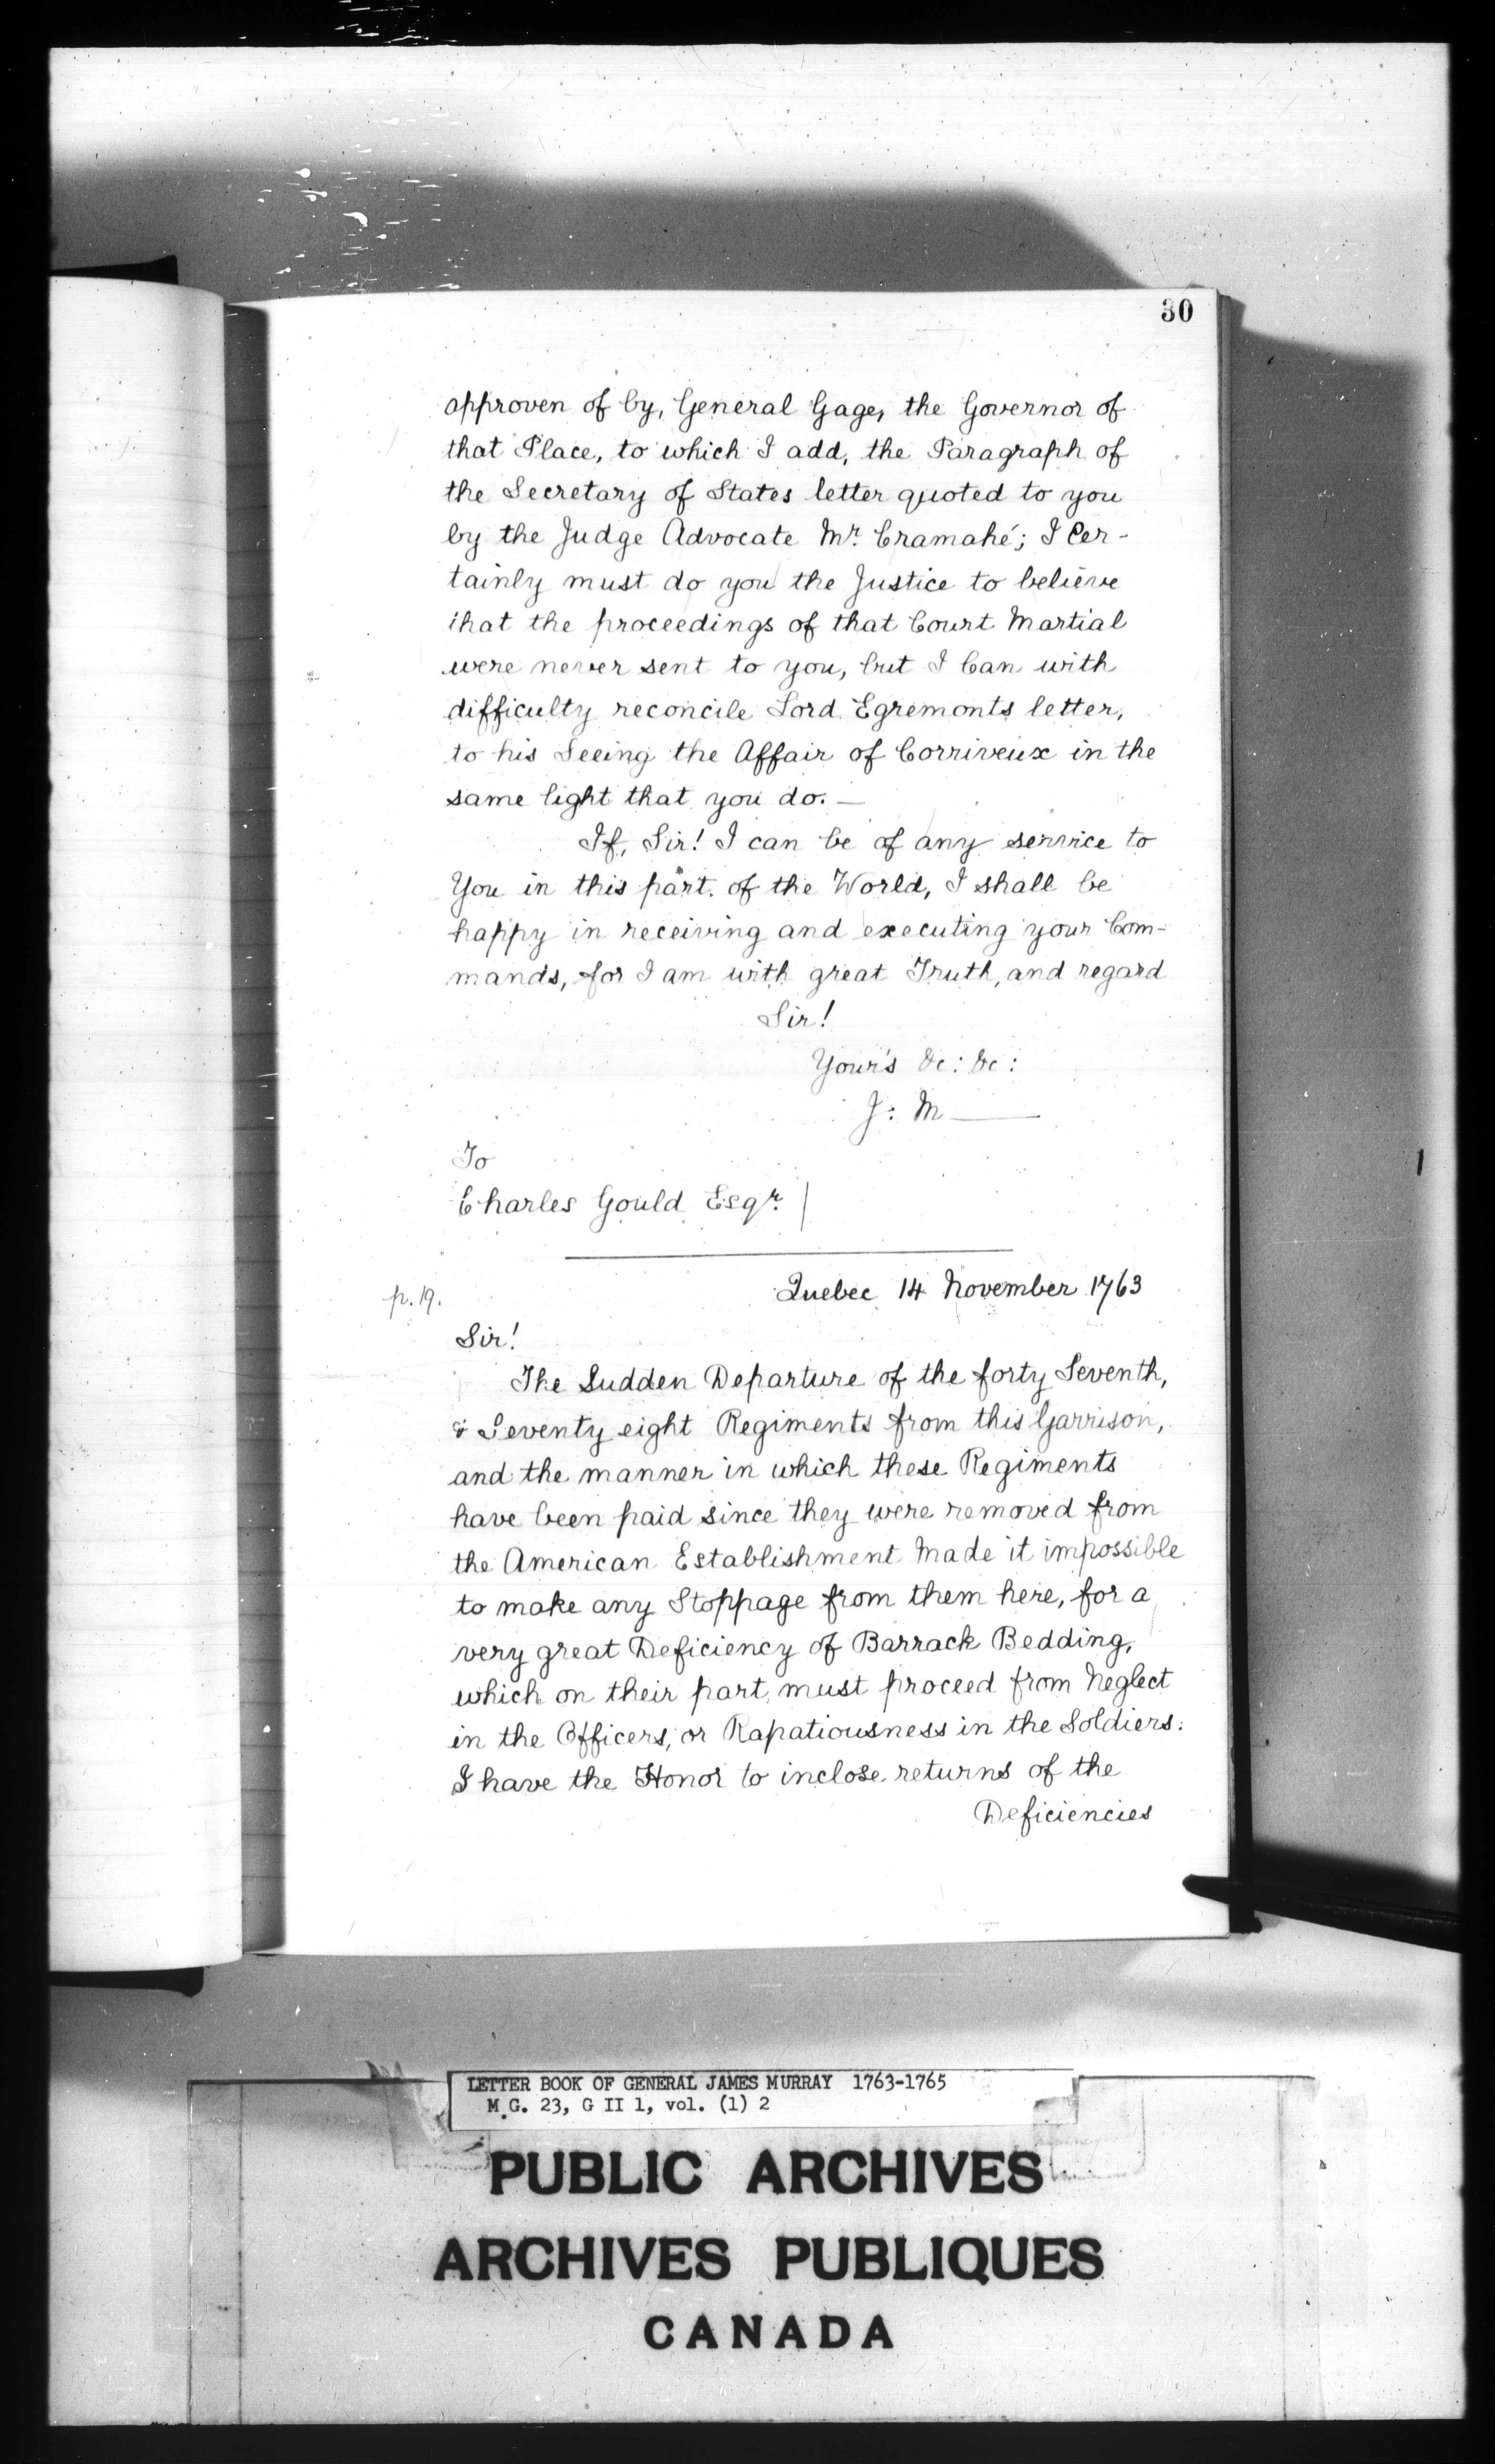 30
approven of by, General Gage, the Governor of
that Place, to which I add, the Paragraph of
the Secretary of States letter quoted to you
by the Judge Advocate Mr. Cramahé; I Cer-
tainly must do you the Justice to believe
that the proceedings of that Court Martial
were never sent to you, but I Can with
difficulty reconcile Lord Egremonts letter,
to his Seeing the Affair of Corriveux in the
same light that you do. —
If, Sir! I can be of any service to
You in this part. of the World, I shall be
happy in receiving and executing your Com-
mands, for I am with great Truth, and regard
Sir!
Your's &c: &c:
J: M——
To
Charles Gould Esqr.
p. 19.
Quebec 14 November 1763
Sir!
The Sudden Departure of the forty Seventh,
& Seventy eight Regiments from this Garrison,
and the manner in which these Regiments
have been paid since they were removed from
the American Establishment Made it impossible
to make any Stoppage from them here, for a
very great Deficiency of Barrack Bedding,
which on their part, must proceed from Neglect
in the Officers, or Rapatiousness in the Soldiers:
I have the Honor to inclose returns of the
Deficiencies
LETTER BOOK OF GENERAL JAMES MURRAY 1763-1765
M.G. 23, G II 1, vol. (1) 2
PUBLIC ARCHIVES
ARCHIVES PUBLIQUES
CANADA